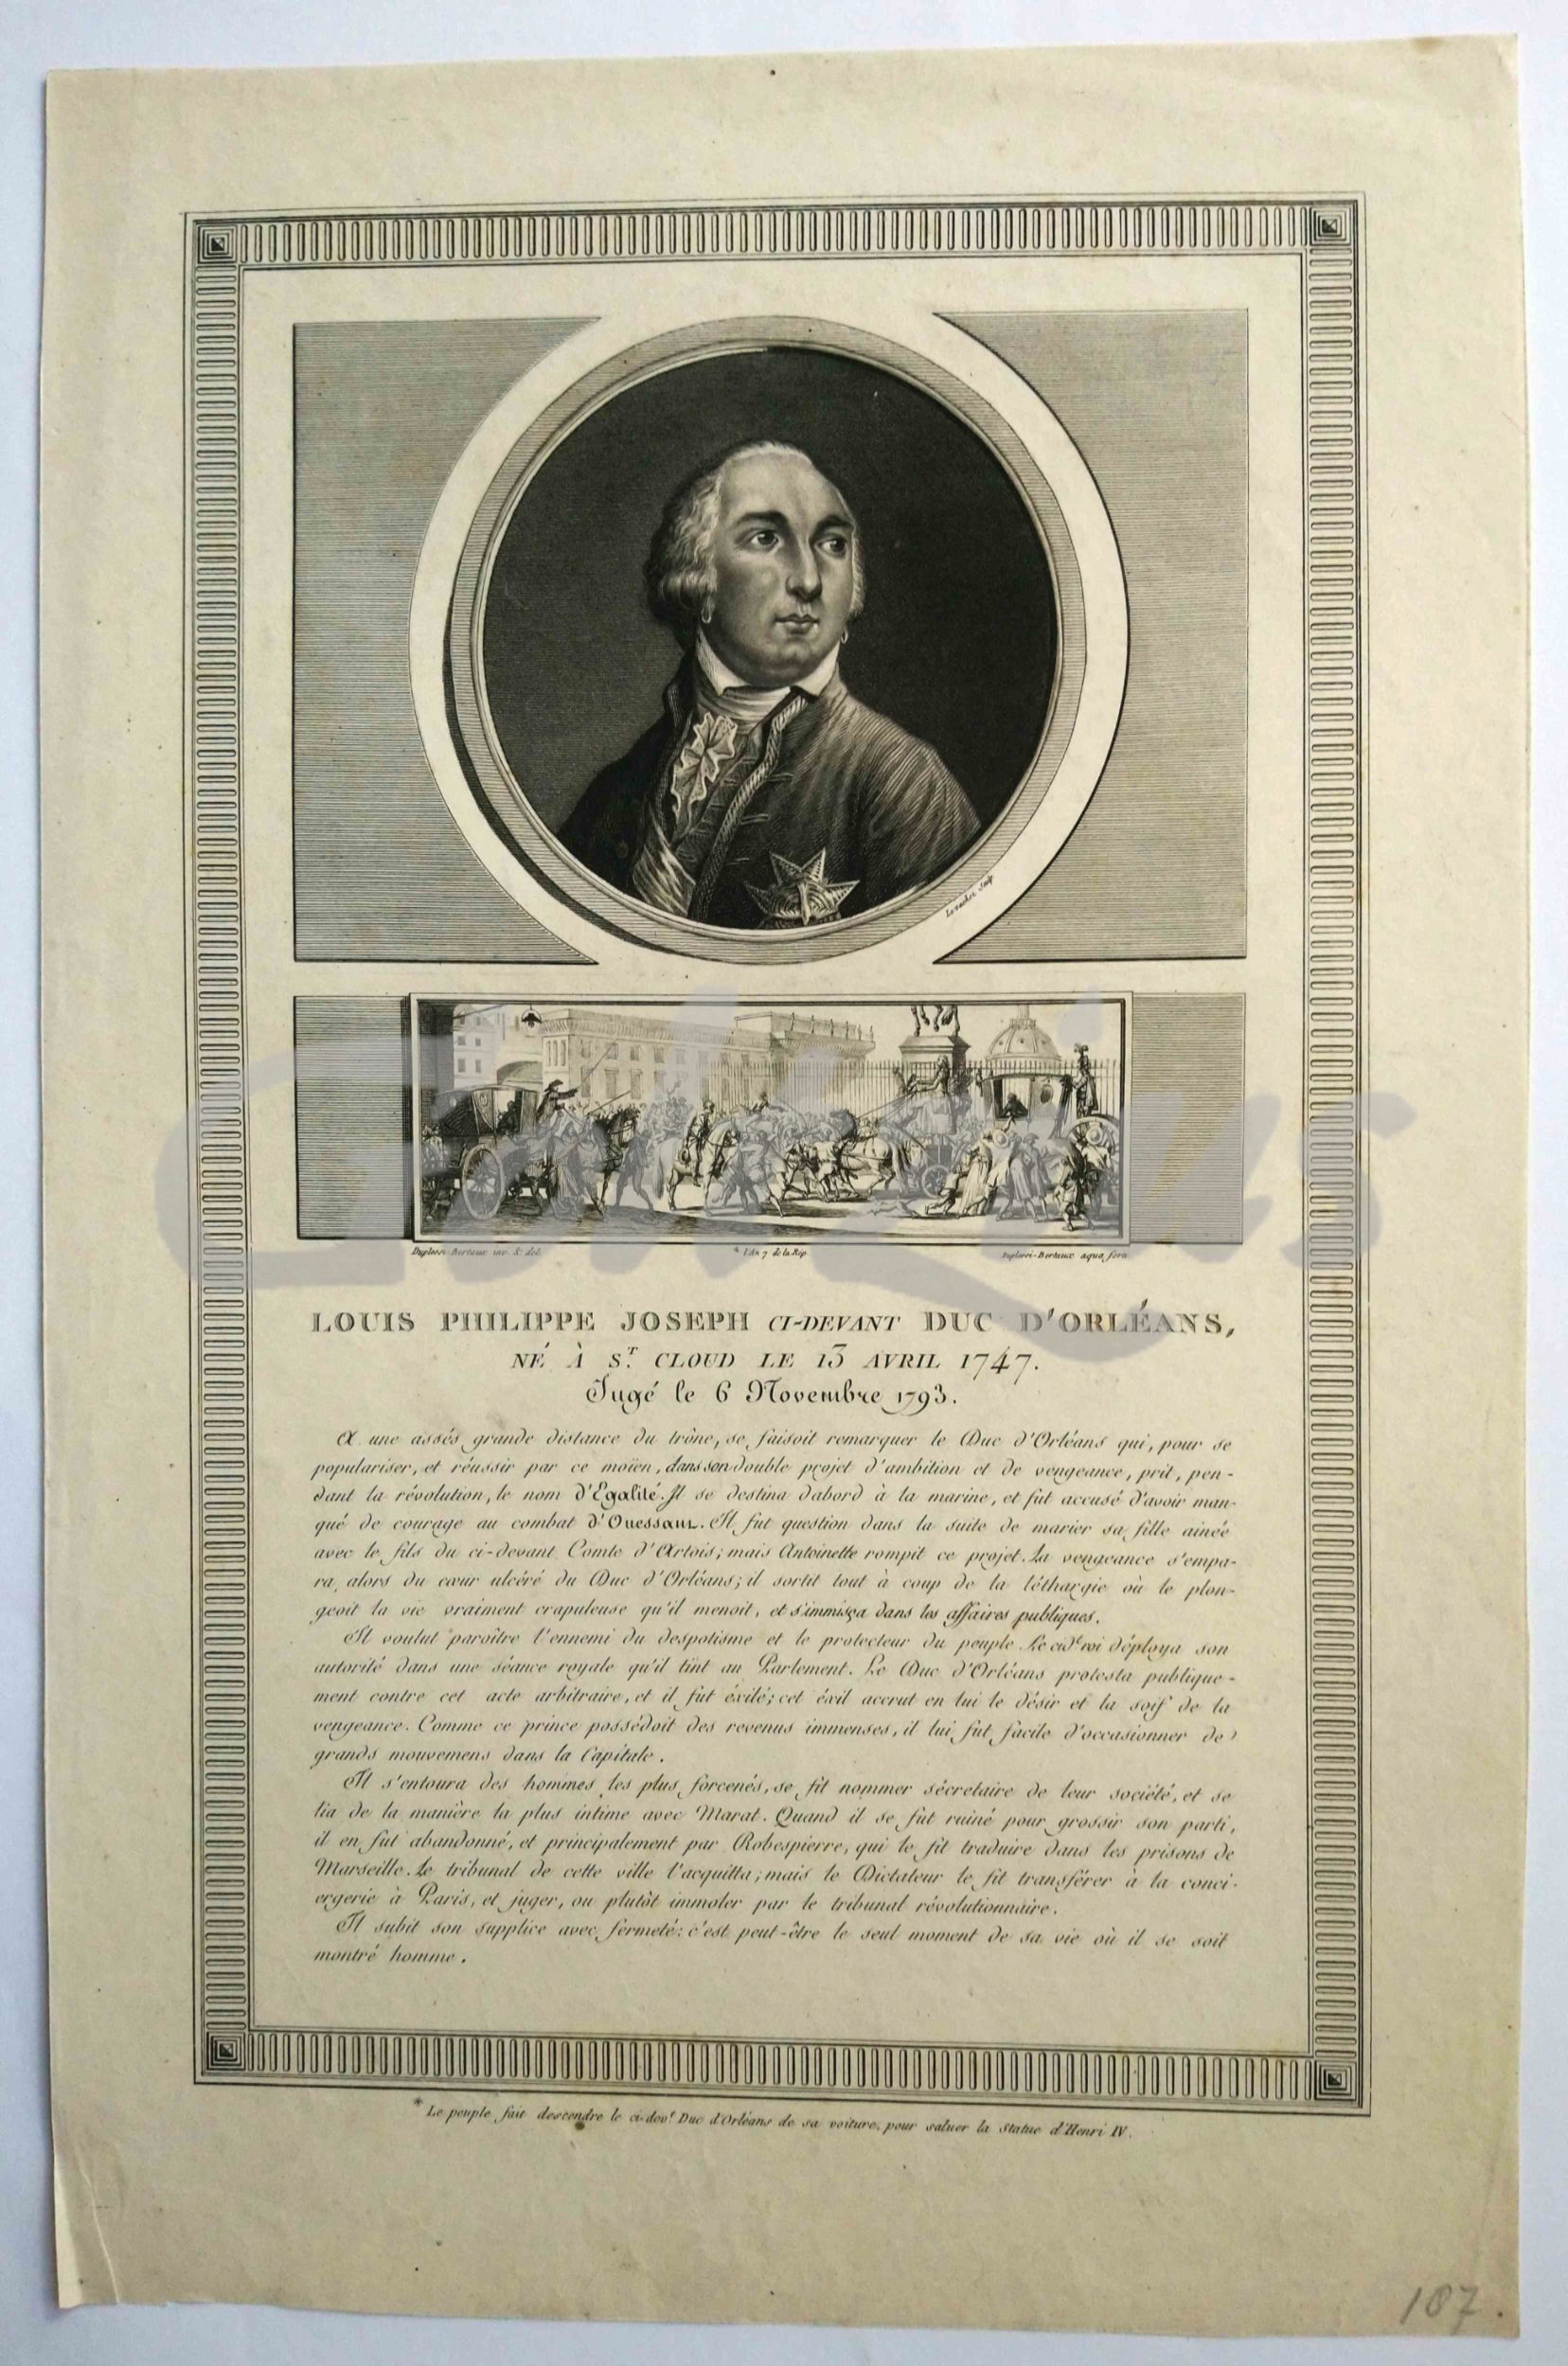 Levachez Sculp
Duplessi-Bertaux inv. & del.
* l'An 7 de la Rép.
Duplessi-Bertaux aqua forti
LOUIS PHILIPPE JOSEPH CI-DEVANT DUC D'ORLÉANS,
NÉ À S.T CLOUD LE 13 AVRIL 1747.
Jugé le 6 Novembre 1793.
A une assés grande distance du trône, se faisoit remarquer le Duc d'Orléans qui, pour se
populariser, et réussir par ce moïen, dans son double projet d'ambition et de vengeance, prit, pen-
dant la révolution, le nom d'Egalité. Il se destina dabord à la marine, et fut accusé d'avoir man-
qué de courage au combat d'Ouessant. Il fut question dans la suite de marier sa fille ainée
avec le fils du ci-devant Comte d'Artois; mais Antoinette rompit ce projet. La vengeance s'empa-
ra alors du cœur ulcéré du Duc d'Orléans; il sortit tout à coup de la léthargie où le plon-
geoit la vie vraiment crapuleuse qu'il menoit, et s'immisça dans les affaires publiques.
Il voulut paroître l'ennemi du despotisme et le protecteur du peuple. Le cidt roi déploya son
autorité dans une séance royale qu'il tint au Parlement. Le Duc d'Orléans protesta publique-
ment contre cet acte arbitraire, et il fut éxilé; cet éxil accrut en lui le désir et la soif de la
vengeance. Comme ce prince possédoit des revenus immenses, il lui fut facile d'occasionner de
grands mouvemens dans la Capitale.
Il s'entoura des hommes les plus forcenés, se fit nommer sécretaire de leur société, et se
lia de la manière la plus intime avec Marat. Quand il se fut ruiné pour grossir son parti,
il en fut abandonné, et principalement par Robespierre, qui le fit traduire dans les prisons de
Marseille. Le tribunal de cette ville l'acquitta; mais le Dictateur le fit transférer à la conci-
ergerie à Paris, et juger, ou plutôt immoler par le tribunal révolutionnaire.
Il subit son supplice avec fermeté: c'est peut-être le seul moment de sa vie où il se soit
montré homme.
* Le peuple fait descendre le ci-devt Duc d'Orléans de sa voiture, pour saluer la Statue d'Henri IV.
107.